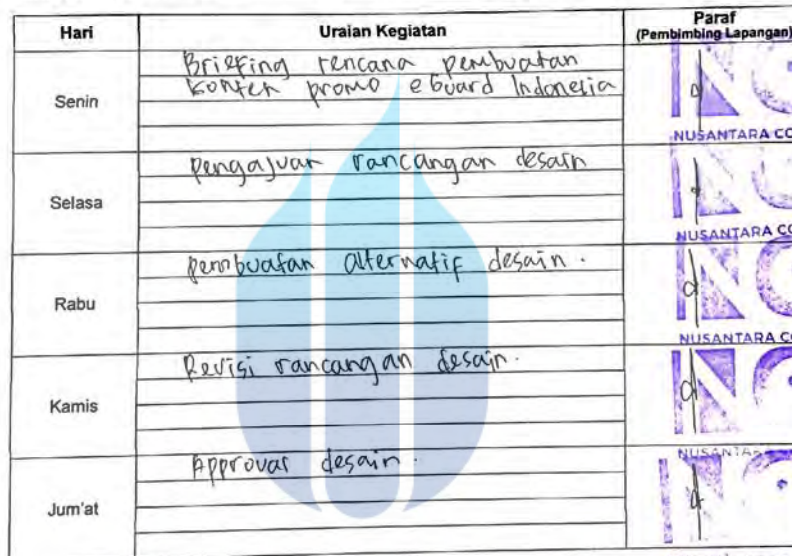 Hari Uraian Kegiatan Paraf
(Pembimbing Lapangan)
Senin
Briefing rencana pembuatan
konten promo eGuard Indonesia
NUSANTARA CO
Selasa
pengajuan rancangan desain
NUSANTARA CO
Rabu
pembuatan alternatif desain.
NUSANTARA CO
Kamis
Revisi rancangan desain.
NUSANTA
Jum'at
Approval desain.